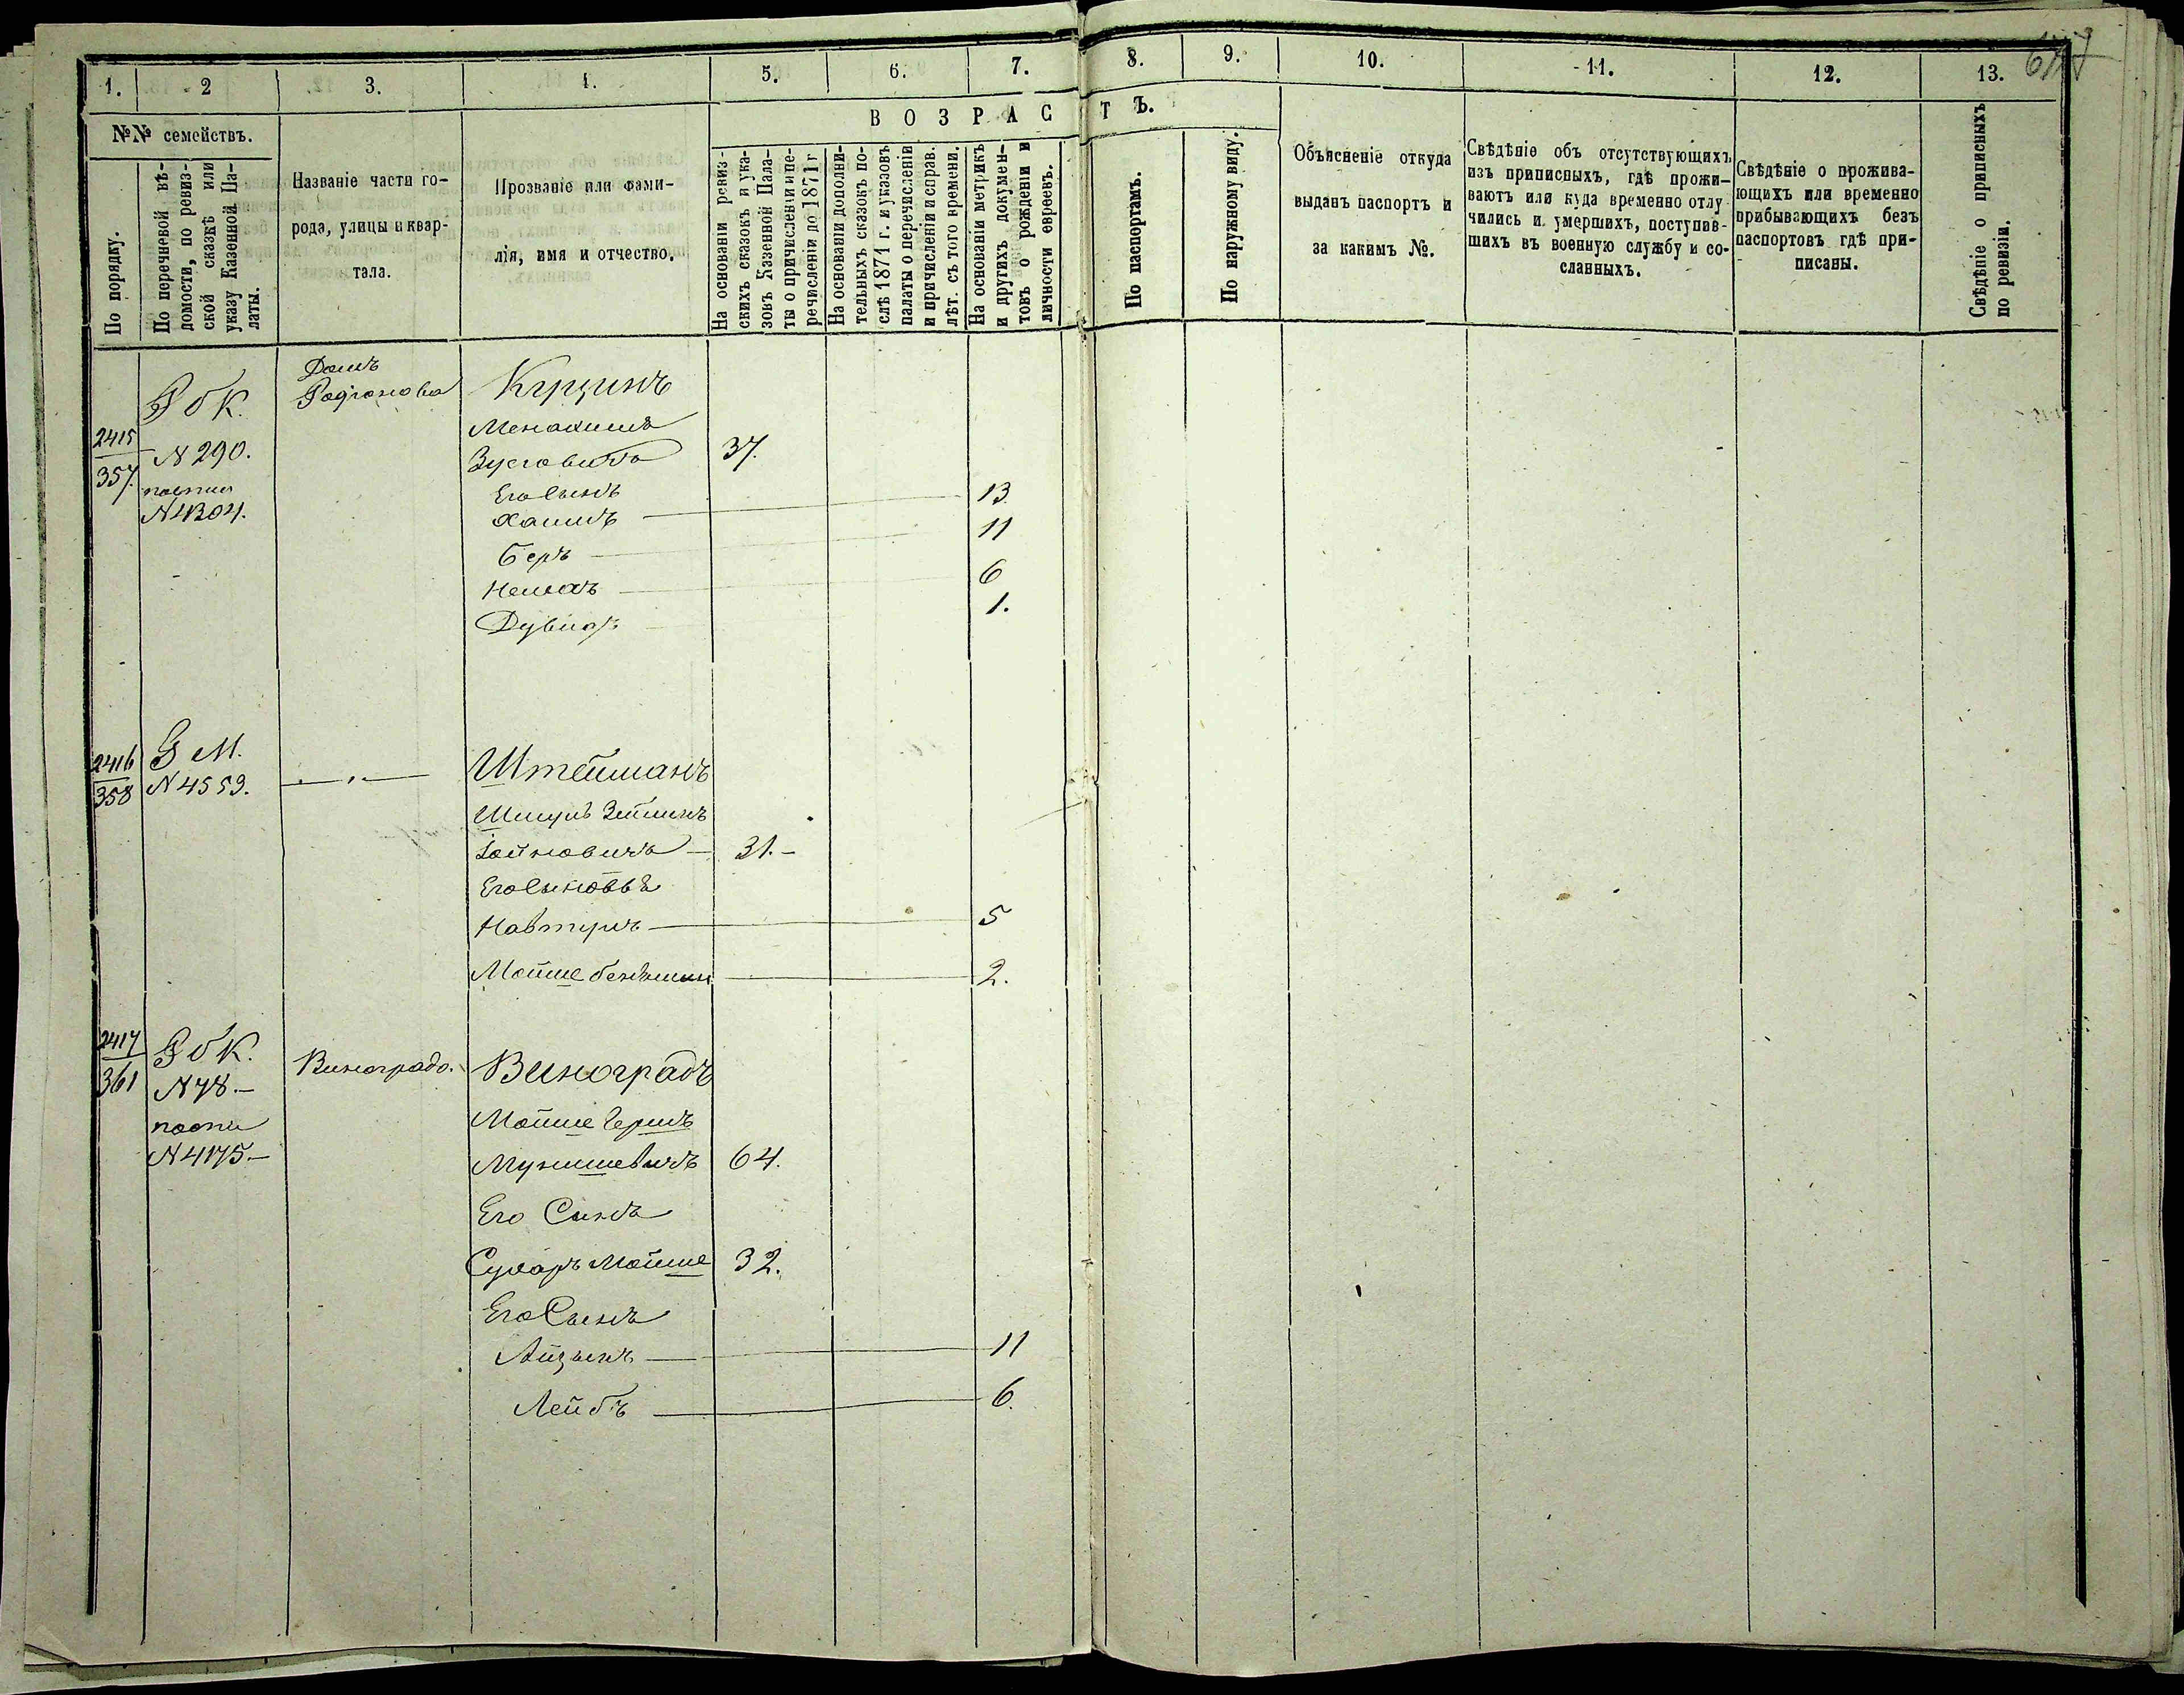 1. 2 3. 4. 5. 6. 7. 8. 9. 10. 11. 12. 13.
В О З Р А С Т Ъ.
№№ семействъ.
По порядку.
По перечневой вѣ-
домости, по ревиз-
ской сказкѣ или
указу Казенной Па-
латы.
Названіе части го-
рода, улицы и квар-
тала.
Прозваніе или фами-
лія, имя и отчество.
На основаніи ревиз-
скихъ сказокъ и ука-
зовъ Казенной Пала-
ты о причисленіи и пе-
речисленіи до 1871 г
На основаніи дополни-
тельныхъ сказокъ по-
слѣ 1871 г. и указовъ
палаты о перечисленіи
и причисленіи и справ.
лѣт. съ того времени.
На основаніи метрикъ
и другихъ докумен-
товъ о рожденіи и
личности евреевъ.
По паспортамъ.
По наружному виду.
Объясненіе откуда
выданъ паспортъ и
за какимъ №.
Свѣдѣніе объ отсутствующихъ
изъ приписныхъ, гдѣ прожи-
ваютъ или куда временно отлу
чились и умершихъ, поступив-
шихъ въ военную службу и со-
сланныхъ.
Свѣдѣніе о прожива-
ющихъ или временно
прибывающихъ безъ
паспортовъ гдѣ при-
писаны.
Свѣдѣніе о приписныхъ
по ревизіи.
Домъ
Родіонова
2415
357
N 290.
N 4304.
Менахимъ
Зусговичъ 37.
Его сынъ
Хаимъ 13
Беръ 11
Немахъ 6
1.
2416
358
М.
N 4559.
Штейманъ
31.
Его сыновья
Навтулъ 5
Мойше беньямин 2.
2417
361
N 78.
N 4175.
Виноградо.
Виноградъ
Мойше Гершъ
Мунишевичъ 64.
Его Сынъ
Сухаръ Мойше 32.
Его Сынъ
Айзыкъ 11
Лейбъ 6.